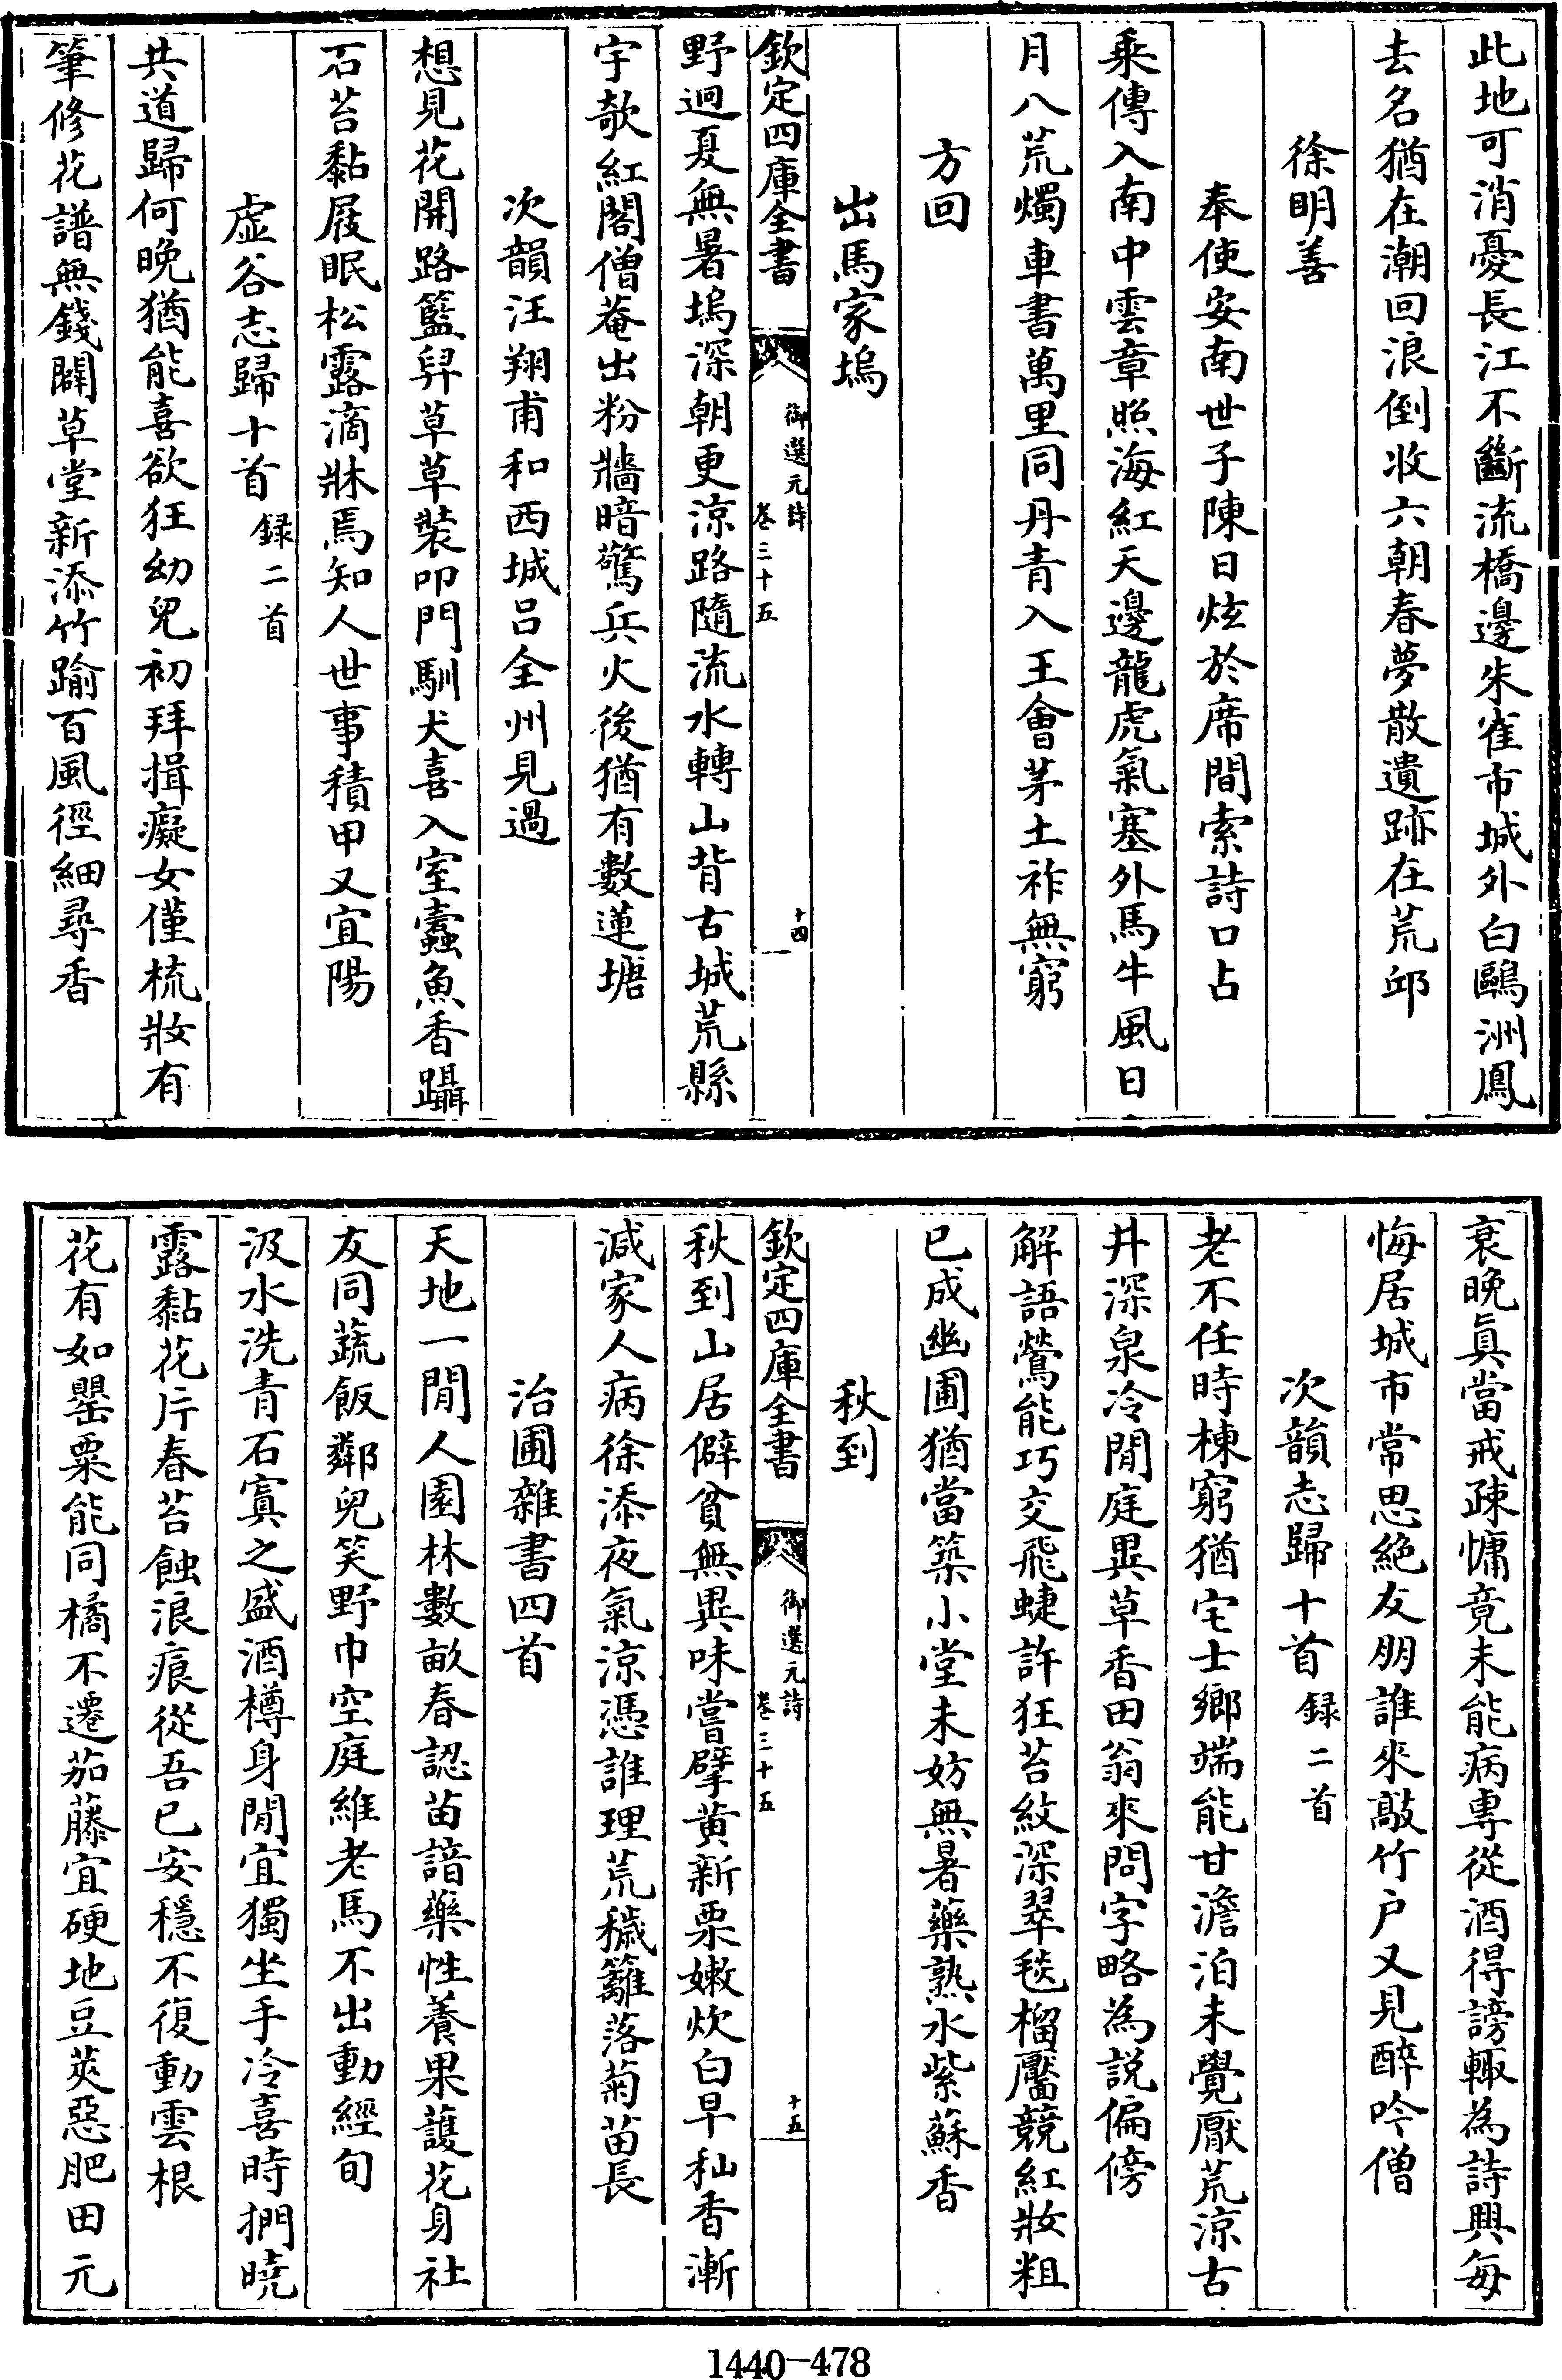 此地可消憂長江不斷流橋邊朱雀市城外白鷗洲鳳
去名猶在潮回浪倒收六朝春夢散遺跡在荒邱
徐明善
奉使安南世子陳日炫於席間索詩口占
乘傳入南中雲章照海紅天邊龍虎氣塞外馬牛風日
月八荒燭車書萬里同丹青入王會茅土祚無窮
方回
出馬家塢
欽定四庫全書
御選元詩
卷三十五
十四
野迥夏無暑塢深朝更涼路隨流水轉山背古城荒縣
宇欹紅閣僧菴出粉牆暗驚兵火後猶有數蓮塘
次韻汪翔甫和西城呂全州見過
想見花開路籃舁草草裝叩門馴犬喜入室蠹魚香躡
石苔黏屐眠松露滴牀焉知人世事積甲又宜陽
虛谷志歸十首錄二首
共道歸何晚猶能喜欲狂幼兒初拜揖癡女僅梳妝有
筆修花譜無錢闢草堂新添竹踰百風徑細尋香
衰晚真當戒疎慵竟未能病專從酒得謗輙為詩興每
悔居城市常思絕友朋誰來敲竹户又見醉吟僧
次韻志歸十首錄二首
老不任時棟窮猶宅士鄉端能甘澹泊未覺厭荒涼古
井深泉冷閒庭異草香田翁來問字略為説偏傍
解語鶯能巧交飛蜨許狂苔紋深翠毯榴靨競紅妝粗
已成幽圃猶當築小堂未妨無暑藥熟水紫蘇香
秋到
欽定四庫全書
御選元詩
卷三十五
十五
秋到山居僻貧無異味嘗擘黄新栗嫩炊白早秈香漸
減家人病徐添夜氣涼憑誰理荒穢籬落菊苗長
治圃雜書四首
天地一閒人園林數畝春認苗諳藥性養果護花身社
友同蔬飯鄰兒笑野巾空庭維老馬不出動經旬
汲水洗青石寘之盛酒樽身閒宜獨坐手冷喜時捫曉
露黏花片春苔蝕浪痕從吾已安穩不復動雲根
花有如罌粟能同橘不遷茄藤宜硬地豆莢惡肥田元
1440-478